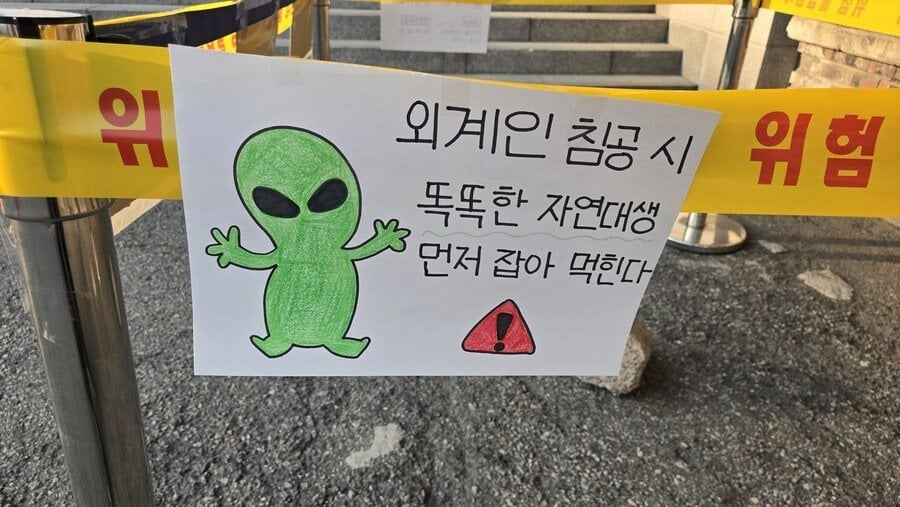 위
외계인 침공 시
똑똑한 자연대생
먼저 잡아 먹힌다
위험